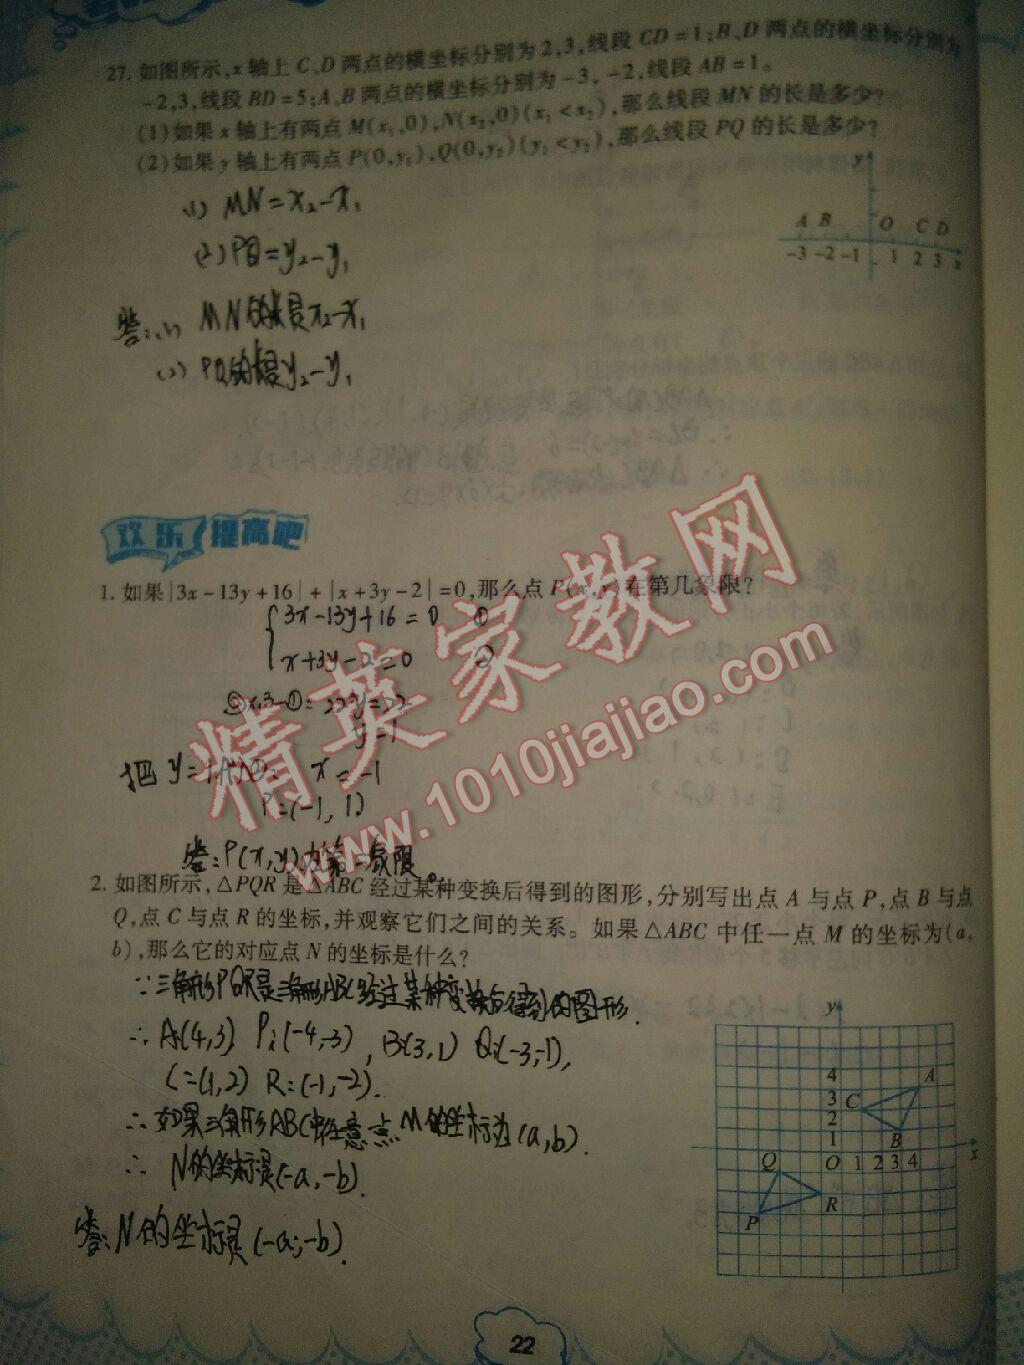 27. 如图所示,x 轴上 C、D 两点的横坐标分别为 2,3,线段 CD=1;B、D 两点的横坐标分别为
-2,3,线段 BD=5;A、B 两点的横坐标分别为 -3,-2,线段 AB=1。
(1)如果 x 轴上有两点 M(x₁,0),N(x₂,0)(x₁<x₂),那么线段 MN 的长是多少?
(2)如果 y 轴上有两点 P(0,y₁),Q(0,y₂)(y₁<y₂),那么线段 PQ 的长是多少?
(1) MN=x₂-x₁
(2) PQ=y₂-y₁
答:(1) MN的长是x₂-x₁
(2) PQ的长是y₂-y₁
y
A B O C D
-3 -2 -1 1 2 3 x
欢乐提高吧
1. 如果|3x-13y+16|+|x+3y-2|=0,那么点 P(x,y)在第几象限?
3x-13y+16=0 ①
x+3y-2=0 ②
②×3-①: 22y=22
y=1
把 y=1代入②: x=-1
P=(-1,1)
答:P(x,y)在第二象限。
2. 如图所示,△PQR 是△ABC 经过某种变换后得到的图形,分别写出点 A 与点 P,点 B 与点
Q,点 C 与点 R 的坐标,并观察它们之间的关系。如果△ABC 中任一点 M 的坐标为(a,
b),那么它的对应点 N 的坐标是什么?
∵三角形PQR是三角形ABC经过某种变换后得到的图形.
∴ A:(4,3) P:(-4,-3), B:(3,1) Q:(-3,-1),
C=(1,2) R:(-1,-2).
∴ 如果三角形ABC中任意一点M的坐标为(a,b).
∴ N的坐标是(-a,-b).
答:N的坐标是(-a,-b).
y
4
3
2
1
A
C
B
O 1 2 3 4 x
Q
R
P
22
精英家教网
www.1010jiajiao.com